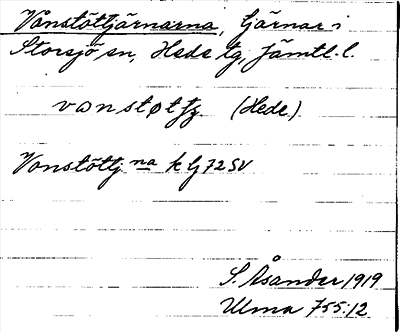 Vonstöttjärnarna, tjärnar i
Storsjö sn, Hede tg, Jämtl. l.
vonstøtfȩ. (Hede.)
Vonstöttj. na k lj 72 SV
S. Åsander 1919
Ulma 755:12